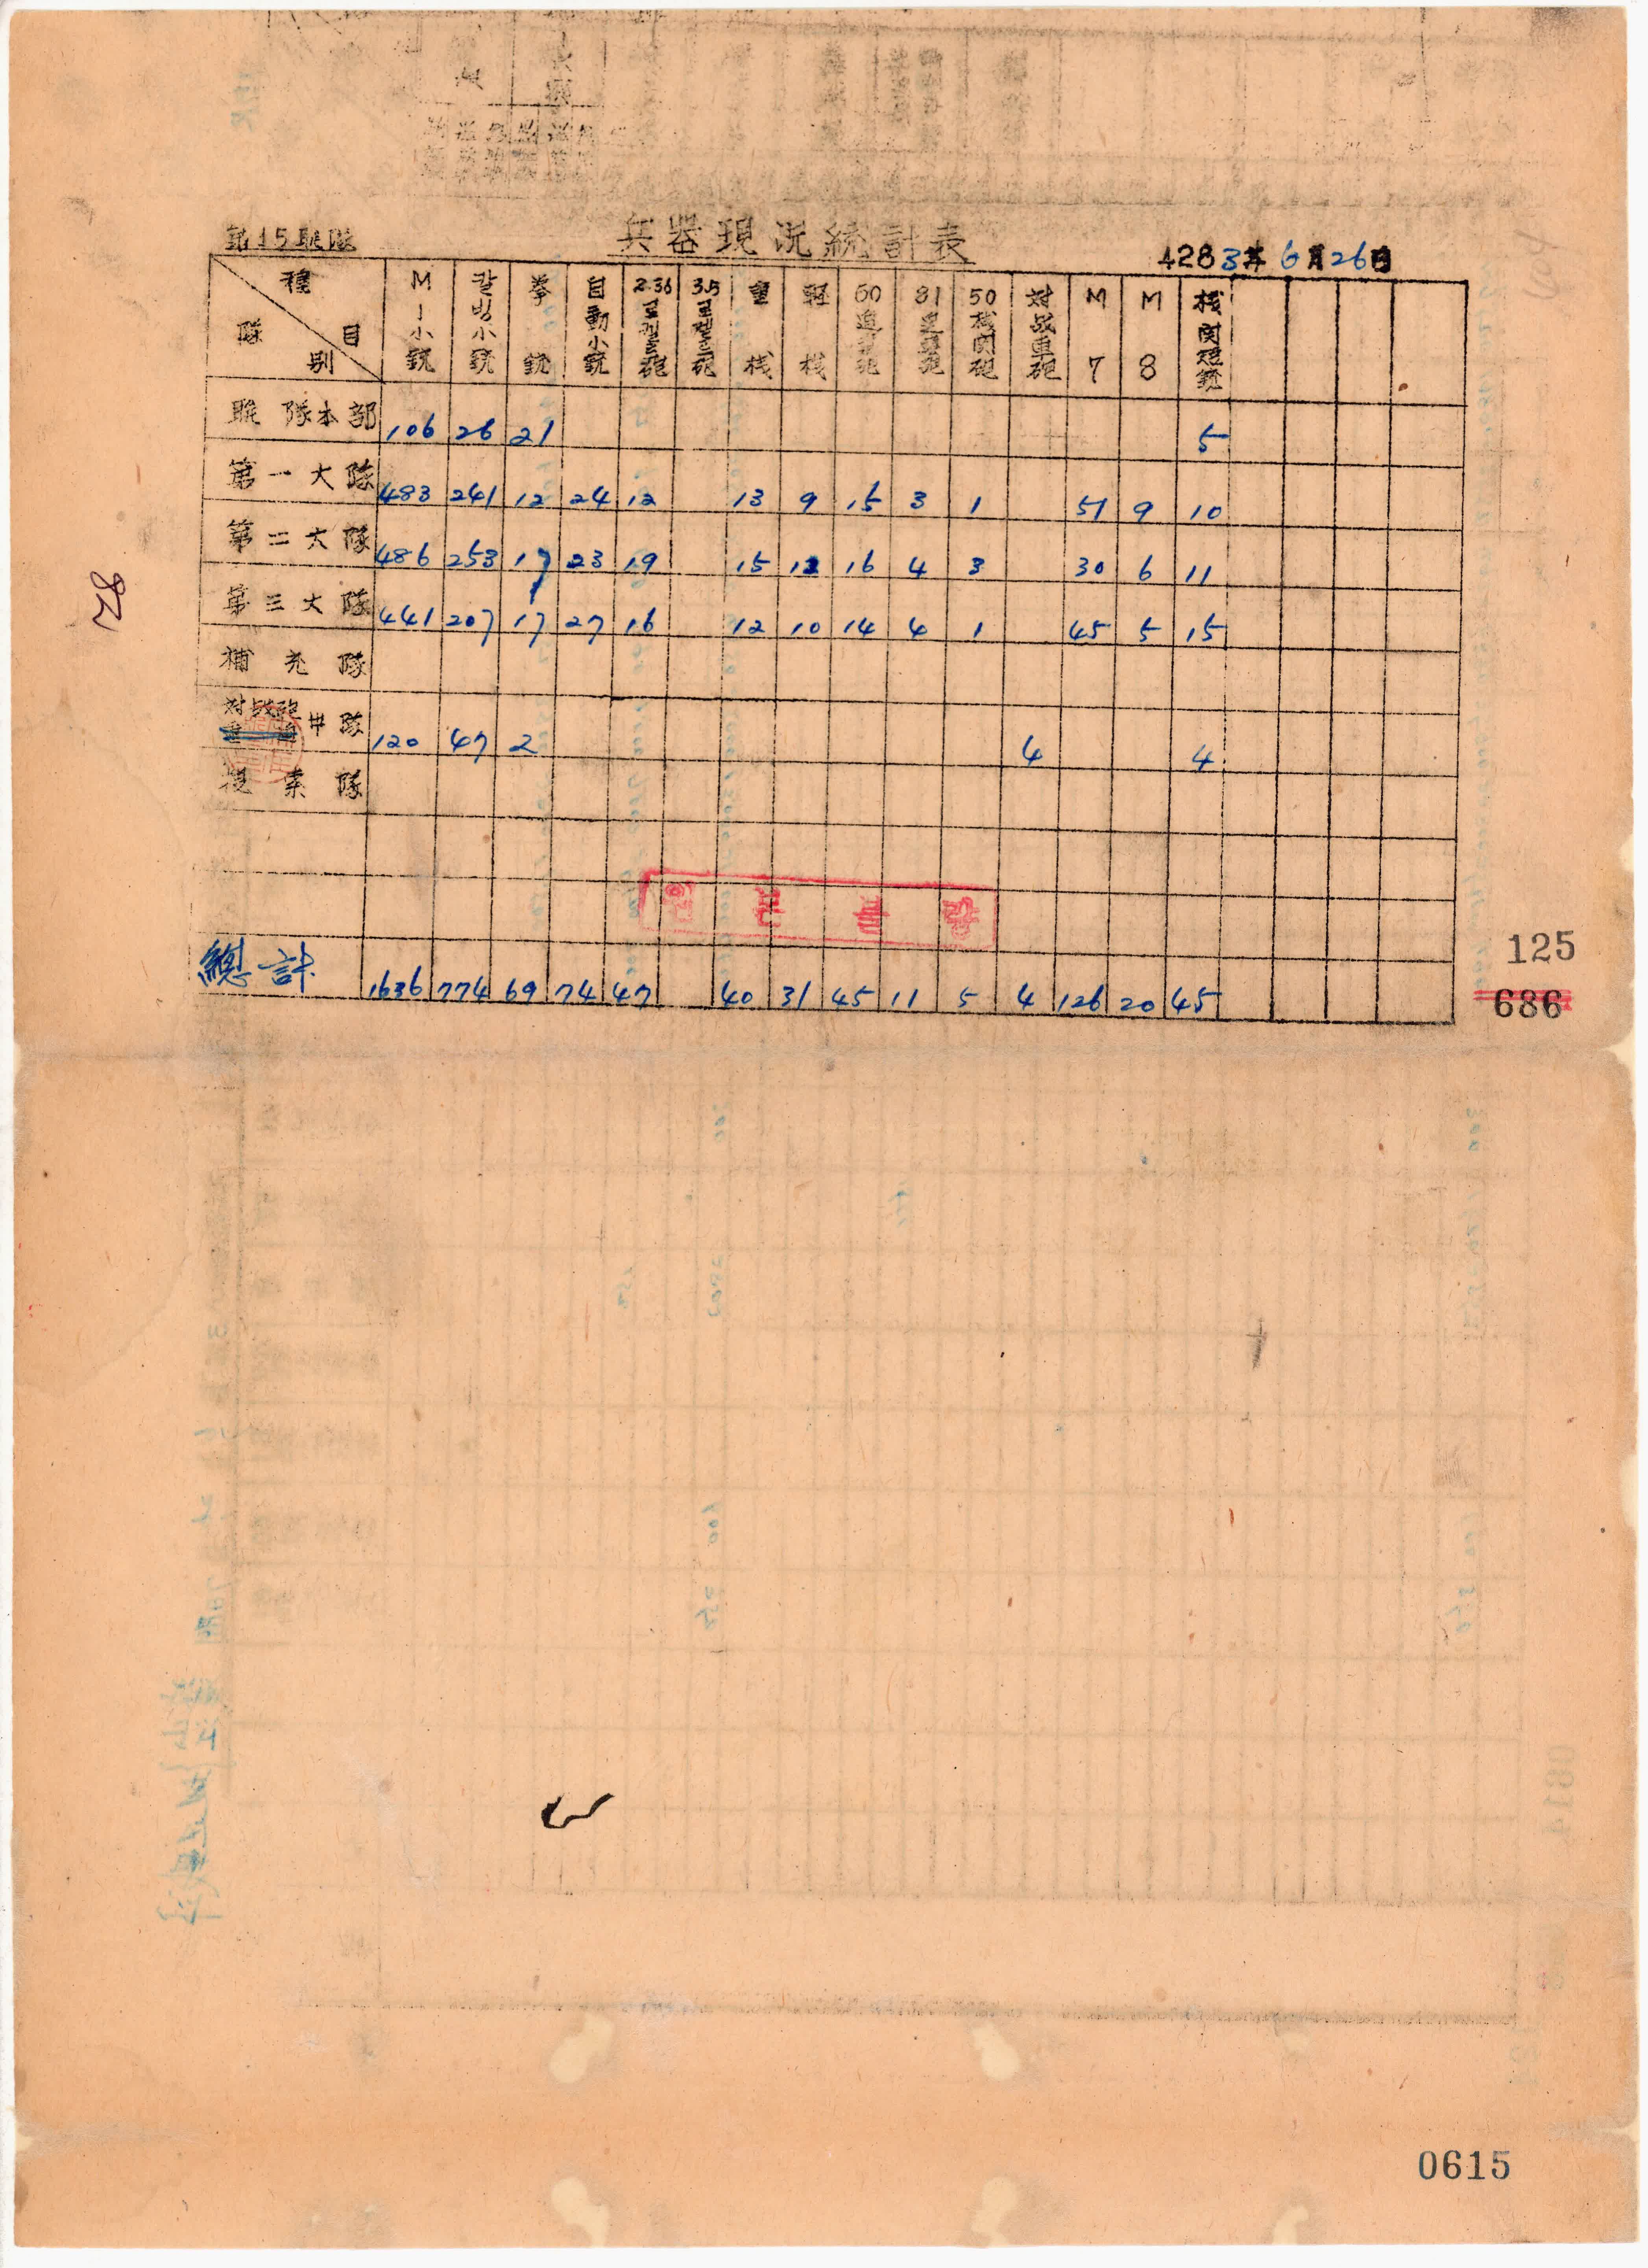 第15聯隊
兵器現況統計表
4283年 6月26日
種目 隊別 M1小銃 칼빙小銃 拳銃 自動小銃 2.36로켙트砲 3.5로켙트砲 重機 軽機 60迫撃砲 81迫撃砲 50機関砲 対战車砲 M7 M8 機関短銃
聯隊本部 106 26 21 5
第一大隊 483 241 12 24 12 13 9 15 3 1 51 9 10
第二大隊 486 253 17 23 19 15 12 16 4 3 30 6 11
第三大隊 441 207 17 27 16 12 10 14 4 1 45 5 15
補充隊
対战砲中隊 120 47 2 4 4
捜索隊
總計 1636 774 69 74 47 40 31 45 11 5 4 126 20 45
125
686
82
0615